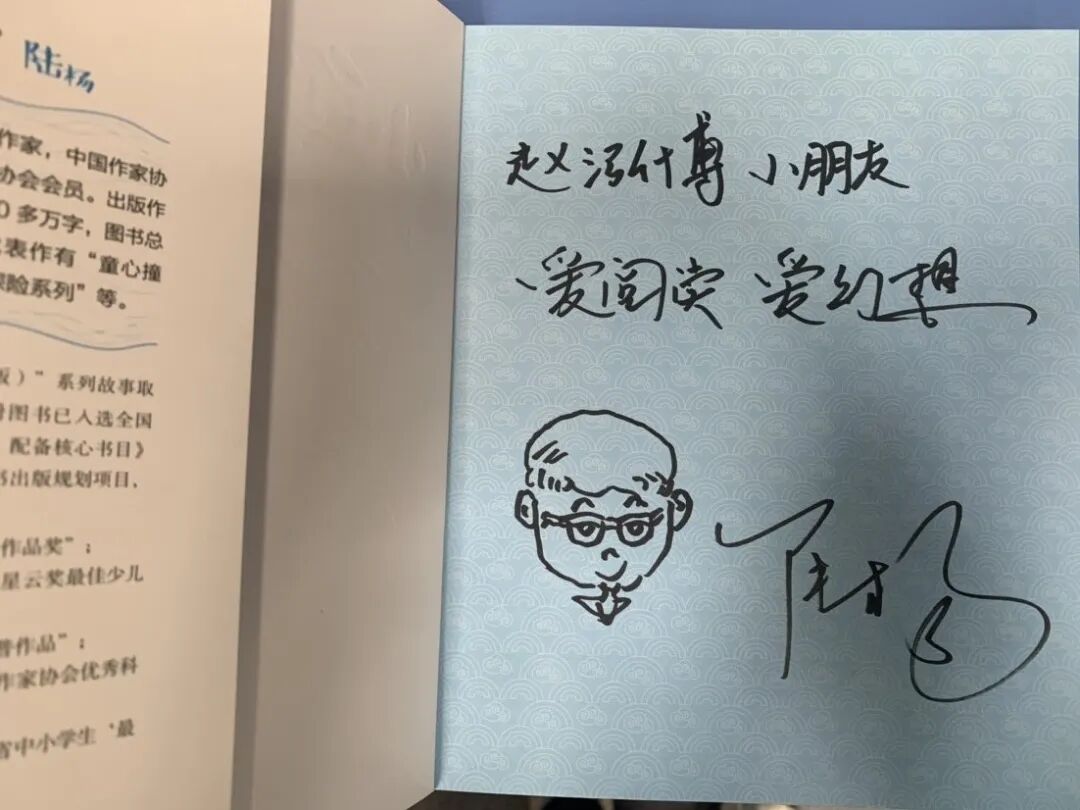 陆杨
作家，中国作家协
协会会员。出版作
0 多万字，图书总
表作有“童心撞
探险系列”等。
版）”系列故事取
图书已入选全国
配备核心书目》
书出版规划项目，
作品奖”；
星云奖最佳少儿
普作品”；
作家协会优秀科
省中小学生‘最
赵泓什博 小朋友
爱阅读 爱幻想
陆杨